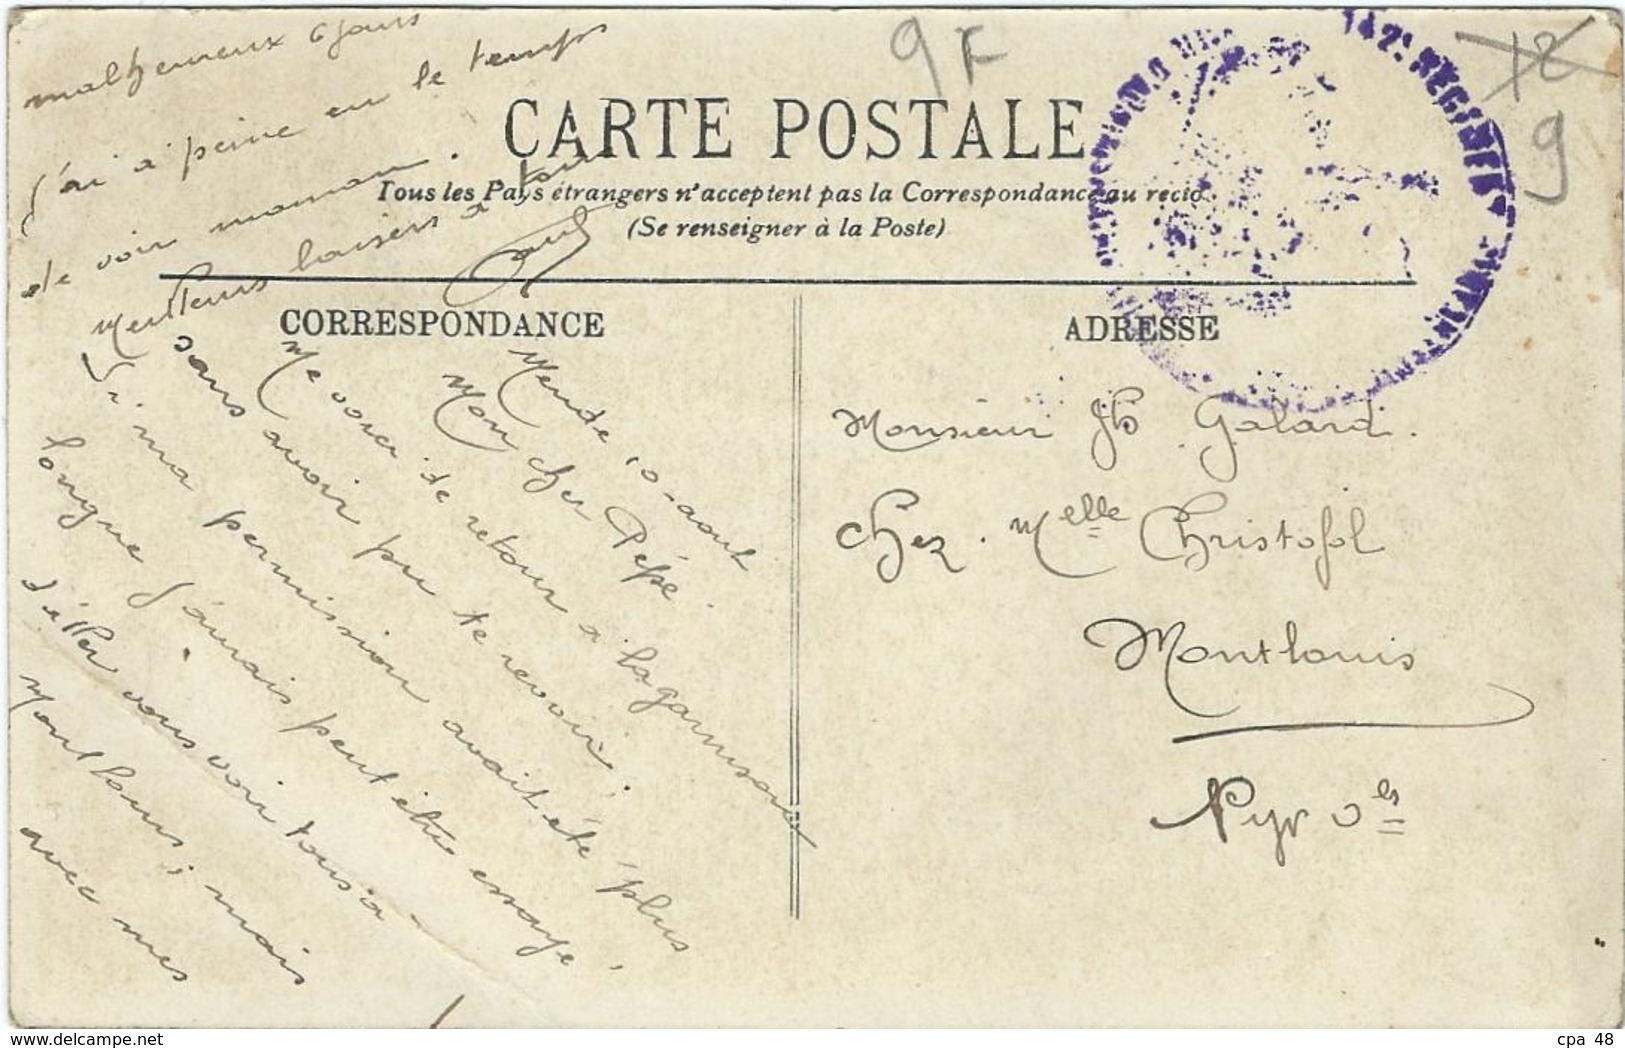 9F
12
9
142e REGIMENT
CARTE POSTALE
Tous les Pays étrangers n'acceptent pas la Correspondance au recto
(Se renseigner à la Poste)
CORRESPONDANCE
ADRESSE
Mende 10-aout
Mon cher Pépé.
Me voici de retour à la garnison
sans avoir pu te revoir.
Si ma permission avait été plus
longue j'aurais peut être essayé
d'aller vous voir tous à
Montlouis; mais
avec mes
malheureux 6 jours
j'ai à peine eu le temps
de voir maman.
Meilleurs baisers à tous
Paul
Monsieur Jh Galard.
Chez Melle Christofol
Montlouis
Pyr Oles
cpa 48